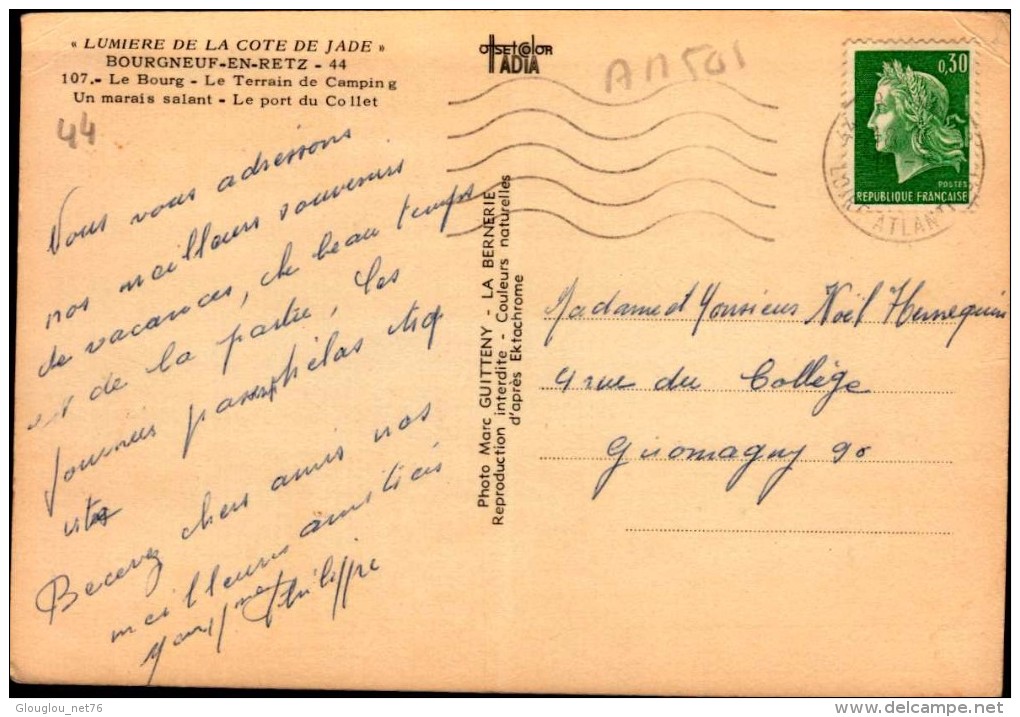 « LUMIERE DE LA COTE DE JADE »
BOURGNEUF-EN-RETZ - 44
107.- Le Bourg - Le Terrain de Camping
Un marais salant - Le port du Collet
44
OFFSET COLOR
ADIA
AM501
0,30
POSTES
REPUBLIQUE FRANÇAISE
44
LOIRE-ATLANTIQUE
Nous vous adressons
nos meilleurs souvenirs
de vacances, le beau temps
est de la partie, les
journées passent hélas trop
vite
Recevez chers amis nos
meilleures amitiés
Philippe
Photo Marc GUITTENY - LA BERNERIE
Reproduction interdite - Couleurs naturelles
d'après Ektachrome
Madame et Monsieur Noël Hennequin
4 rue du Collège
Giromagny 90
Glouglou_net76